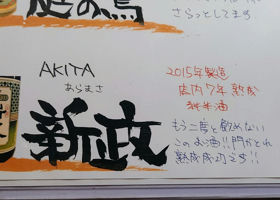 庭の鶯
さらっとしてます
AKITA
あらまさ
新政
2015年製造
店内7年熟成
純米酒
もう二度と飲めない
このお酒!!門かどれ
熟成成功です!!